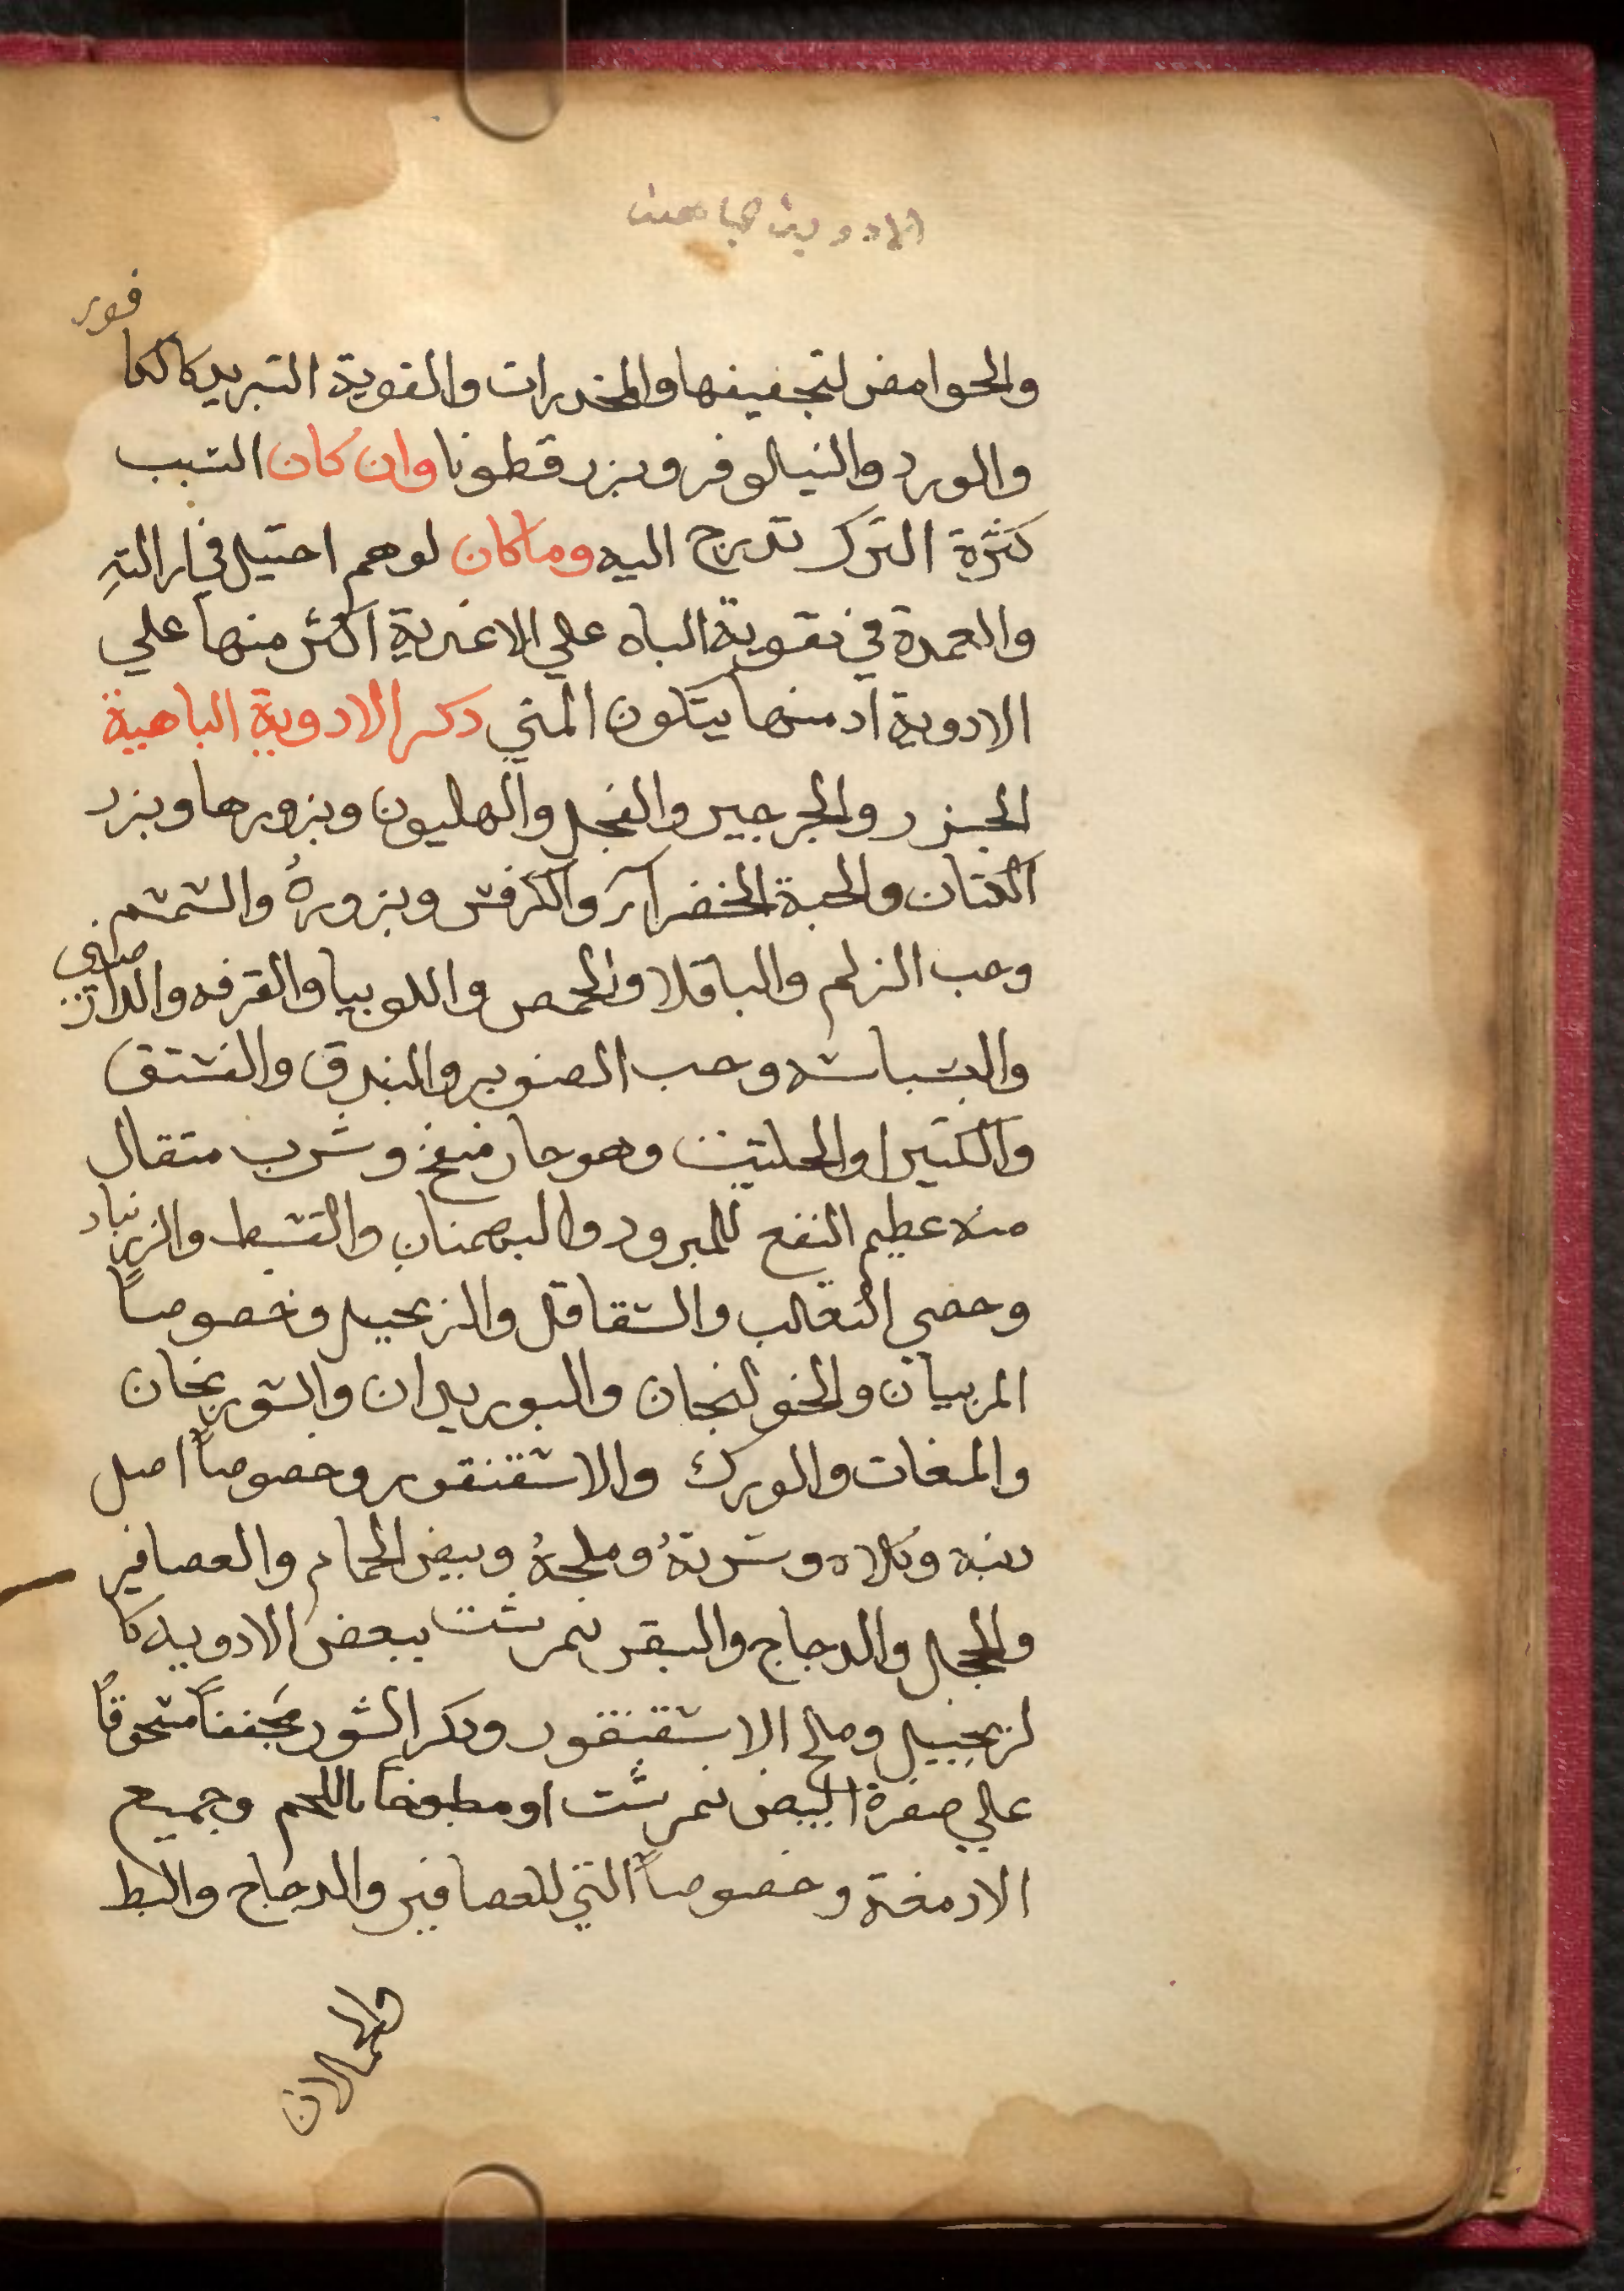 والحوامض لتجفيفها والمخدرات والقوية التبريد كالكا
فور
والورد والنيلوفر وبزر قطونا وان كان السبب
كثرة الترك تدرج اليه وما كان لوهم احتيل في ازالته
والعمدة في تقوية الباه علي الاغدية اكثر منها علي
الادوية اد منها يتكون المني دكر الادوية الباهية
الجزر والجرجير والفجل والهليون وبزورها وبزر
الكتان والحبة الخضرآء والكرفس وبزوره والسمسم
وحب الزلم والباقلا والحمص واللوبيا والقرفه والدار
صيني
والبسباسه وحب الصنوبر والبندق والفستق
والكثيرا والحلتيت وهو حار منفخ وشرب متقال
منه عظيم النفع للمبرود والبهمنان والقسط والزرنباد
وخصي الثعالب والشقاقل والزنجبيل وخصوصاً
المربيان والخولنجان والبوزيدان والسورنجان
والمغات والورك والاسقنقور وخصوصاً اصل
دنبه وكلاه وسرته وملحه وبيض الحمام والعصافير
والحجل والدجاج والبقر نمرشت ببعض الادويه كا
لزنجبيل وملح الاسقنقور ودكر الثور مجففاً مسحوقاً
علي صفرة البيض نمرشت او مطبوخا باللحم وجميع
الادمغة وخصوصاً التي للعصافير والدجاج والبط
والحملان